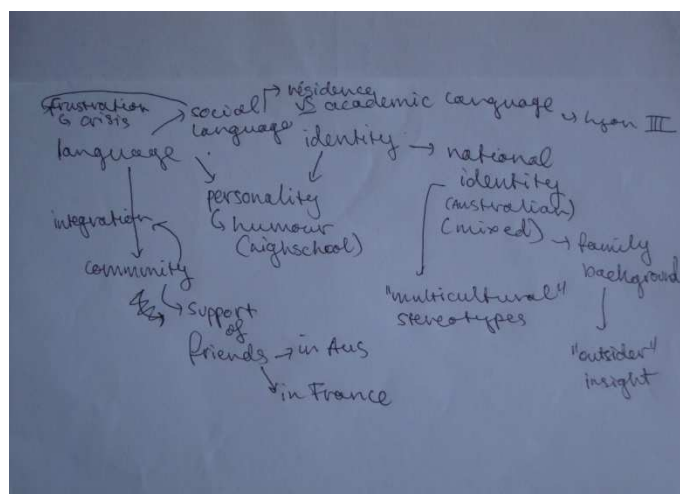 résidence
frustration
↳ crisis
social VS academic language → Lyon III
language
language
identity → national
identity
(Australian)
(mixed) → family
background
personality
↳ humour
(highschool)
integration
community
↳ support
of
friends → in Aus
in France
"multicultural"
stereotypes
"outsider"
insight